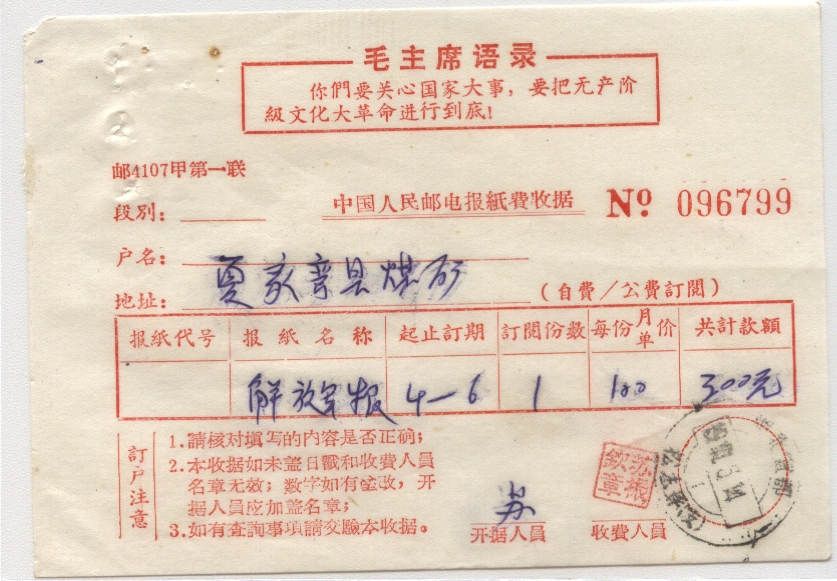 毛主席语录
你們要关心国家大事，要把无产阶
級文化大革命进行到底！
邮4107甲第一联
中国人民邮电报紙費收据 № 096799
段別：
户名：
地址： 县煤矿 （自費／公費訂閱）
报紙代号 报紙名称 起止訂期 訂閱份数 每份月单价 共計款額
解放军报 4—6 1 100 300元
訂户注意
1.請核对填写的内容是否正确；
2.本收据如未盖日戳和收費人員
名章无效；数字如有塗改，开
据人員应加盖名章；
3.如有查詢事項請交驗本收据。
苏
开据人員 收費人員